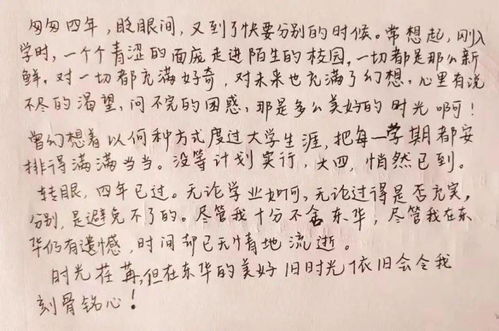 匆匆四年，眨眼间，又到了快要分别的时候。常想起，刚入
学时，一个个青涩的面庞走进陌生的校园，一切都是那么新
鲜，对一切都充满好奇，对未来也充满了幻想，心里有说
不尽的渴望，问不完的困惑，那是多么美好的时光啊！
曾幻想着以何种方式度过大学生涯，把每一学期都安
排得满满当当。没等计划实行，大四，悄然已到。
转眼，四年已过。无论学业如何，无论过得是否充实，
分别，是避免不了的。尽管我十分不舍东华，尽管我在东
华仍有遗憾，时间却已无情地流逝。
时光荏苒，但在东华的美好旧时光依旧会令我
刻骨铭心！